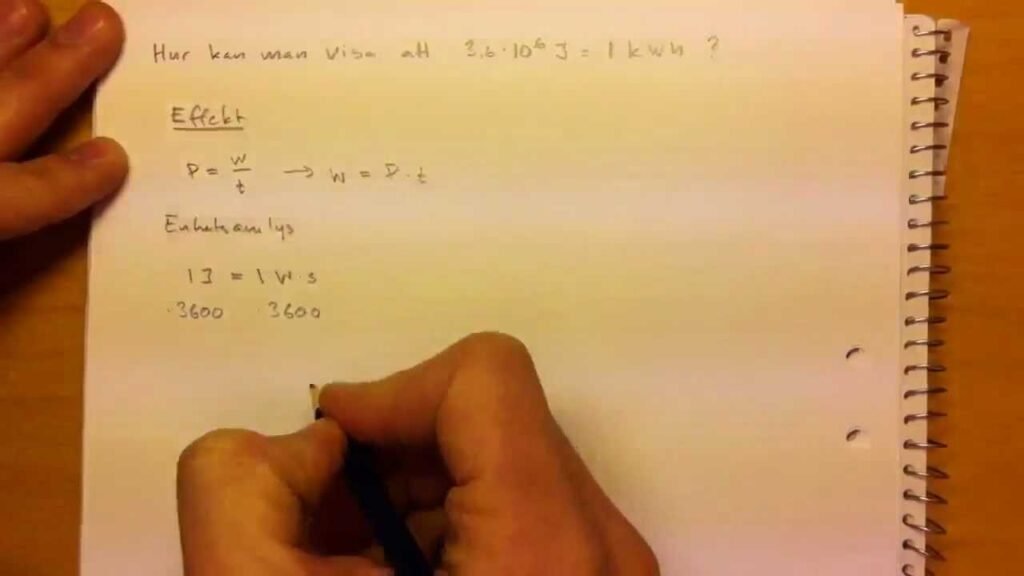 Hur kan man visa att 3.6·10⁶ J = 1 kWh ?
Effekt
P = W/t → W = P·t
Enhetsanalys
1J = 1 W·s
·3600 ·3600